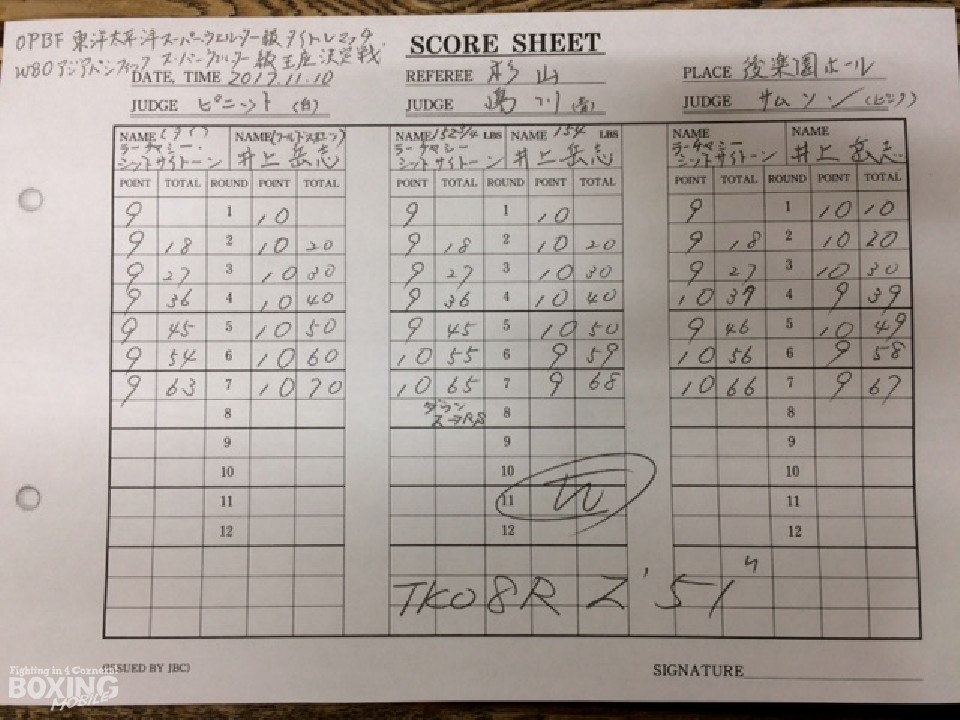 OPBF 東洋太平洋スーパーウェルター級タイトルマッチ
WBOアジアパシフィック スーパーウェルター級王座決定戦
SCORE SHEET
DATE, TIME 2017.11.10 REFEREE 杉山 PLACE 後楽園ホール
JUDGE ピニット (白) JUDGE 嶋川 (青) JUDGE サムソン (ピンク)
NAME (タイ) NAME (ワールドスポーツ) NAME 152 3/4 LBS NAME 154 LBS NAME NAME
ラーチャシー・ ラーチャシー ラーチャシー
シットサイトーン 井上岳志 シットサイトーン 井上岳志 シットサイトーン 井上岳志
POINT TOTAL ROUND POINT TOTAL POINT TOTAL ROUND POINT TOTAL POINT TOTAL ROUND POINT TOTAL
9 1 10 9 1 10 9 1 10 10
9 18 2 10 20 9 18 2 10 20 9 18 2 10 20
9 27 3 10 30 9 27 3 10 30 9 27 3 10 30
9 36 4 10 40 9 36 4 10 40 10 37 4 9 39
9 45 5 10 50 9 45 5 10 50 9 46 5 10 49
9 54 6 10 60 10 55 6 9 59 10 56 6 9 58
9 63 7 10 70 10 65 7 9 68 10 66 7 9 67
8 ダウン 8 8
9 9 9
10 10 10
11 11 11
12 12 12
TKO 8R 2'51"
(ISSUED BY JBC) SIGNATURE
Fighting in 4 Corners
BOXING
MOBILE